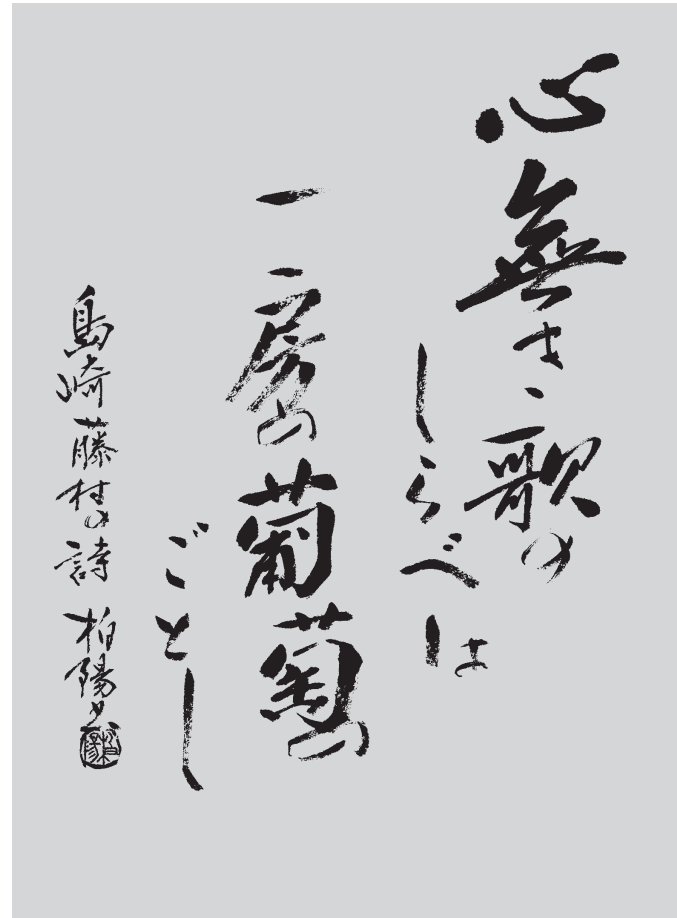 心無き歌の
しらべは
一房の葡萄の
ごとし
島崎藤村の詩 柏陽書